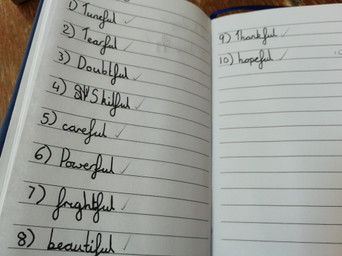 1) Tuneful
2) Tearful
3) Doubtful
4) Skilful
5) careful
6) Powerful
7) frightful
8) beautiful
9) Thankful
10) hopeful